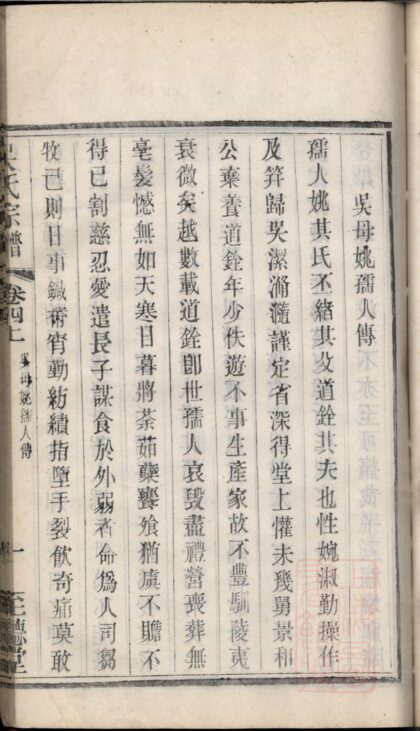 吳母姚孺人傳
孺人姚其氏丕緒其父道銓其夫也性婉淑勤操作
及筓歸吳潔滫瀡謹定省深得堂上懽未幾舅景和
公棄養道銓年少佚遊不事生產家故不豐馴陵夷
衰微矣越數載道銓卽世孺人哀毀盡禮營喪葬無
毫髮憾無如天寒日暮將荼茹蘖饔飱猶虞不贍不
得已割慈忍愛遣長子謀食於外弱者命爲人司芻
牧已則日事鍼黹宵勤紡績指墮手裂飲奇痛莫敢
吳氏宗譜
卷四上
吳母姚孺人傳
一
至德堂